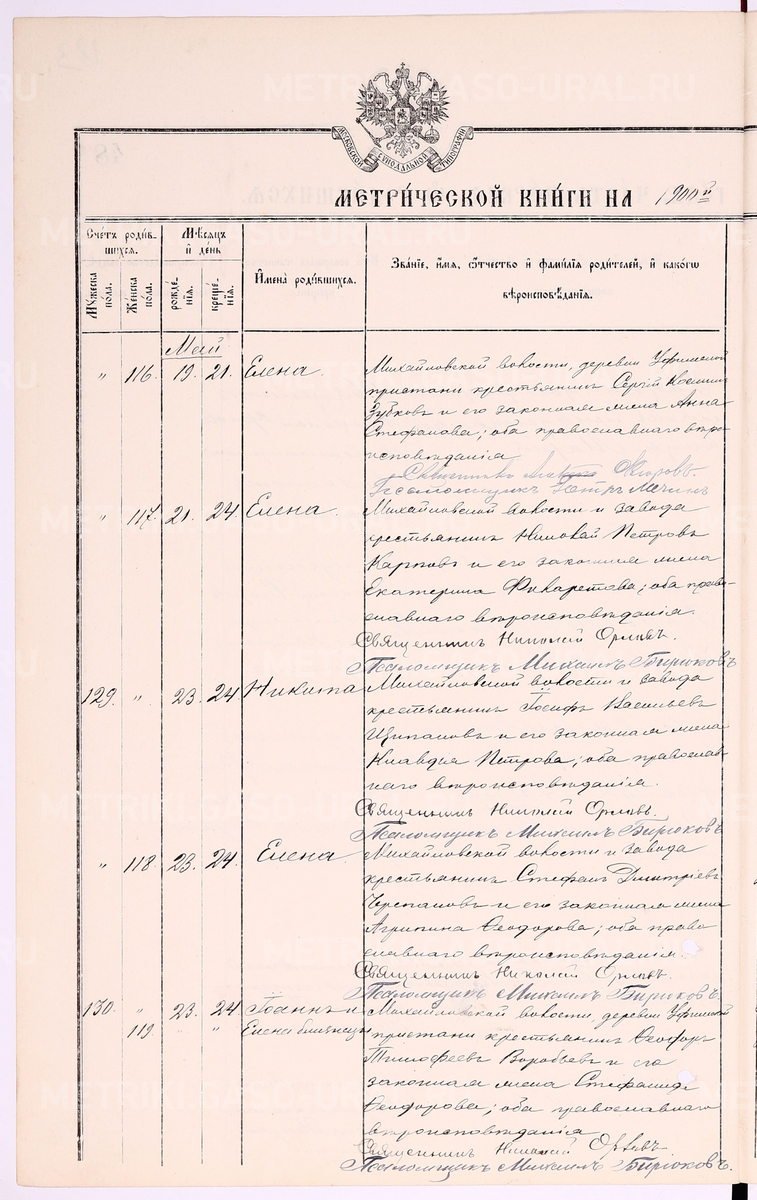 METRICS.GASO-URAL.RU
МОСКОВСКОЙ СѴНОДАЛЬНОЙ ТИПОГРАФІИ
МЕТРИ́ЧЕСКОЙ КНИ́ГИ НА 1900й
Сче́тъ роди́в-
шихся.
Мѣ́сяцъ
и҆ де́нь
И҆мена̀ роди́вшихся.
Зва́ніе, и҆́мя, ѻ҆́тчество и҆ фами́лія роди́телей, и҆ како́гѡ
вѣроисповѣ́данія.
Мꙋ́жеска
по́ла.
Же́нска
по́ла.
рожде́-
нія.
креще́-
нія.
Май
„ 116. 19. 21. Елена. Михайловской волости, деревни Уфимской
пристани крестьянинъ Сергій Косьминъ
Зубковъ и его законная жена Анна
Стефанова; оба православнаго вѣро-
исповѣданія
Священникъ Орловъ.
Псаломщикъ Петръ
„ 117. 21. 24. Елена. Михайловской волости и завода
крестьянинъ Николай Петровъ
Карповъ и его законная жена
Екатерина Филаретова; оба право-
славнаго вѣроисповѣданія.
Священникъ Николай Орловъ.
Псаломщикъ Михаилъ Бирюковъ
129. „ 23. 24. Никита Михайловской волости и завода
крестьянинъ Іосифъ Васильевъ
Щипановъ и его законная жена
Клавдия Петрова; оба православ-
наго вѣроисповѣданія.
Священникъ Николай Орловъ.
Псаломщикъ Михаилъ Бирюковъ
„ 118. 23. 24. Елена Михайловской волости и завода
крестьянинъ Стефанъ Димитріевъ
Черепановъ и его законная жена
Агрипина Ѳеодорова; оба право-
славнаго вѣроисповѣданія.
Священникъ Николай Орловъ.
Псаломщикъ Михаилъ Бирюковъ.
130. „ 23. 24 Іоаннъ и Михайловской волости, деревни Уфимской
119. „ Елена близнецы пристани крестьянинъ Ѳеодоръ
Тимофеевъ Воробьевъ и его
законная жена Стефанида
Ѳеодорова; оба православнаго
вѣроисповѣданія
Священникъ Николай Орловъ
Псаломщикъ Михаилъ Бирюковъ.